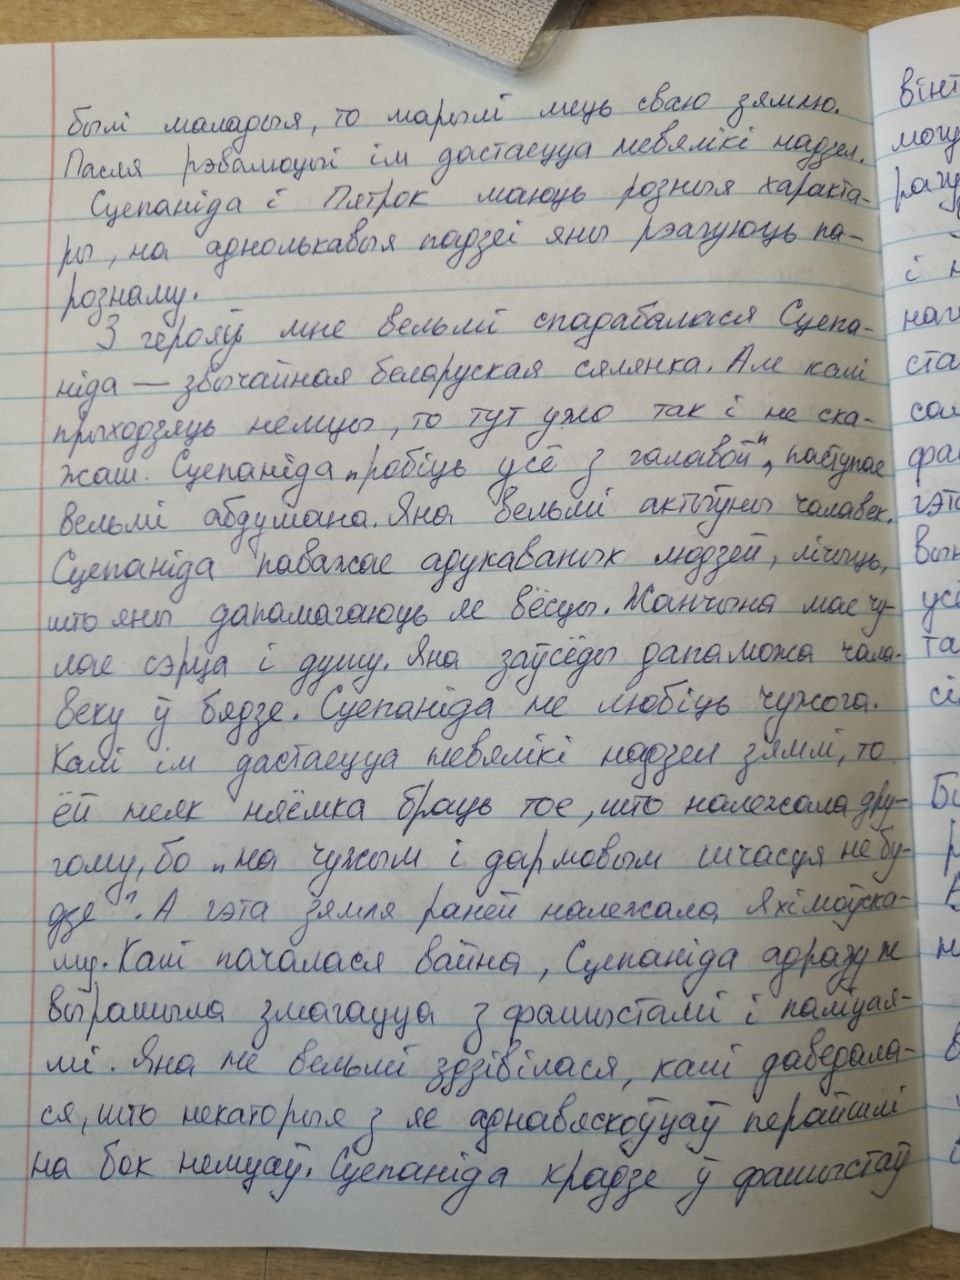 былі маладыя, то марылі мець сваю зямлю.
Пасля рэвалюцыі ім дастаецца невялікі надзел.
Сцепаніда і Пятрок маюць розныя характа-
ры, на аднолькавыя падзеі яны рэагуюць па-
рознаму.
З герояў мне вельмі спадабалася Сцепа-
ніда — звычайная беларуская сялянка. Але калі
прыходзяць немцы, то тут ужо так і не ска-
жаш. Сцепаніда „робіць усё з галавой", паступае
вельмі абдумана. Яна вельмі актыўны чалавек.
Сцепаніда паважае адукаваных людзей, лічыць,
што яны дапамагаюць яе вёсцы. Жанчына мае чу-
лае сэрца і душу. Яна заўсёды дапаможа чала-
веку ў бядзе. Сцепаніда не любіць чужога.
Калі ім дастаецца невялікі надзел зямлі, то
ёй неяк няёмка браць тое, што належала дру-
гому, бо „на чужым і дармовым шчасця не бу-
дзе". А гэта зямля раней належала Яхімоўска-
му. Калі пачалася вайна, Сцепаніда адразу ж
вырашыла змагацца з фашыстамі і паліцая-
мі. Яна не вельмі здзівілася, калі даведала-
ся, што некаторыя з яе аднавяскоўцаў перайшлі
на бок немцаў. Сцепаніда крадзе ў фашыстаў